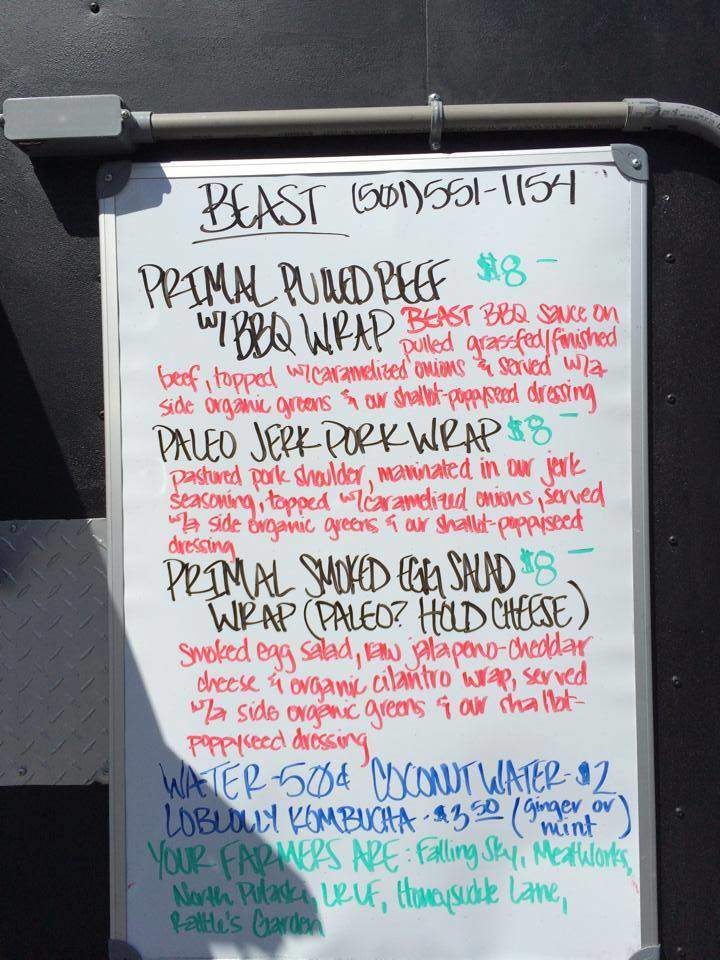 BEAST (501)551-1154
PRIMAL PULLED BEEF $8-
W/ BBQ WRAP BEAST BBQ sauce on
pulled grassfed/finished
beef, topped w/caramelized onions & served w/a
side organic greens & our shallot-poppyseed dressing
PALEO JERK PORK WRAP $8-
pastured pork shoulder, marinated in our jerk
seasoning, topped w/caramelized onions, served
w/a side organic greens & our shallot-poppyseed
dressing
PRIMAL SMOKED EGG SALAD $8-
WRAP (PALEO? HOLD CHEESE)
smoked egg salad, raw jalapeno-cheddar
cheese & organic cilantro wrap, served
w/a side organic greens & our shallot-
poppyseed dressing
WATER-50¢ COCONUT WATER-$2
LOBLOLLY KOMBUCHA-$3 50 (ginger or
mint)
YOUR FARMERS ARE: Falling Sky, MeatWorks,
North Pulaski, LRUF, Honeysuckle Lane,
Rattle's Garden